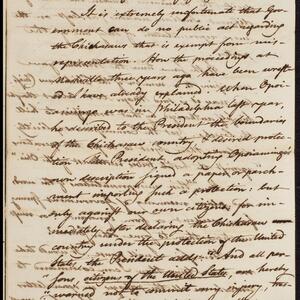 It is extremely unfortunate that Gov-
ernment can do no public act regarding
the Chickasaws that is exempt from mis-
representation. How the proceedings at
Nashville three years ago have been wrest-
ed I have already explained. When Opoi-
mingo was in Philadelphia last year,
he described to the President the boundaries
of the Chickasaw country & desired protec-
tion. The President adopting Opoimingo's
own description signed a paper or parch-
ment importing such a protection; but
only against our own citizens for im-
mediately after declaring the Chickasaw
country under the protection of the United
States, the President adds "And all per-
sons citizens of the United States, are hereby
warned not to commit any injury, tres-